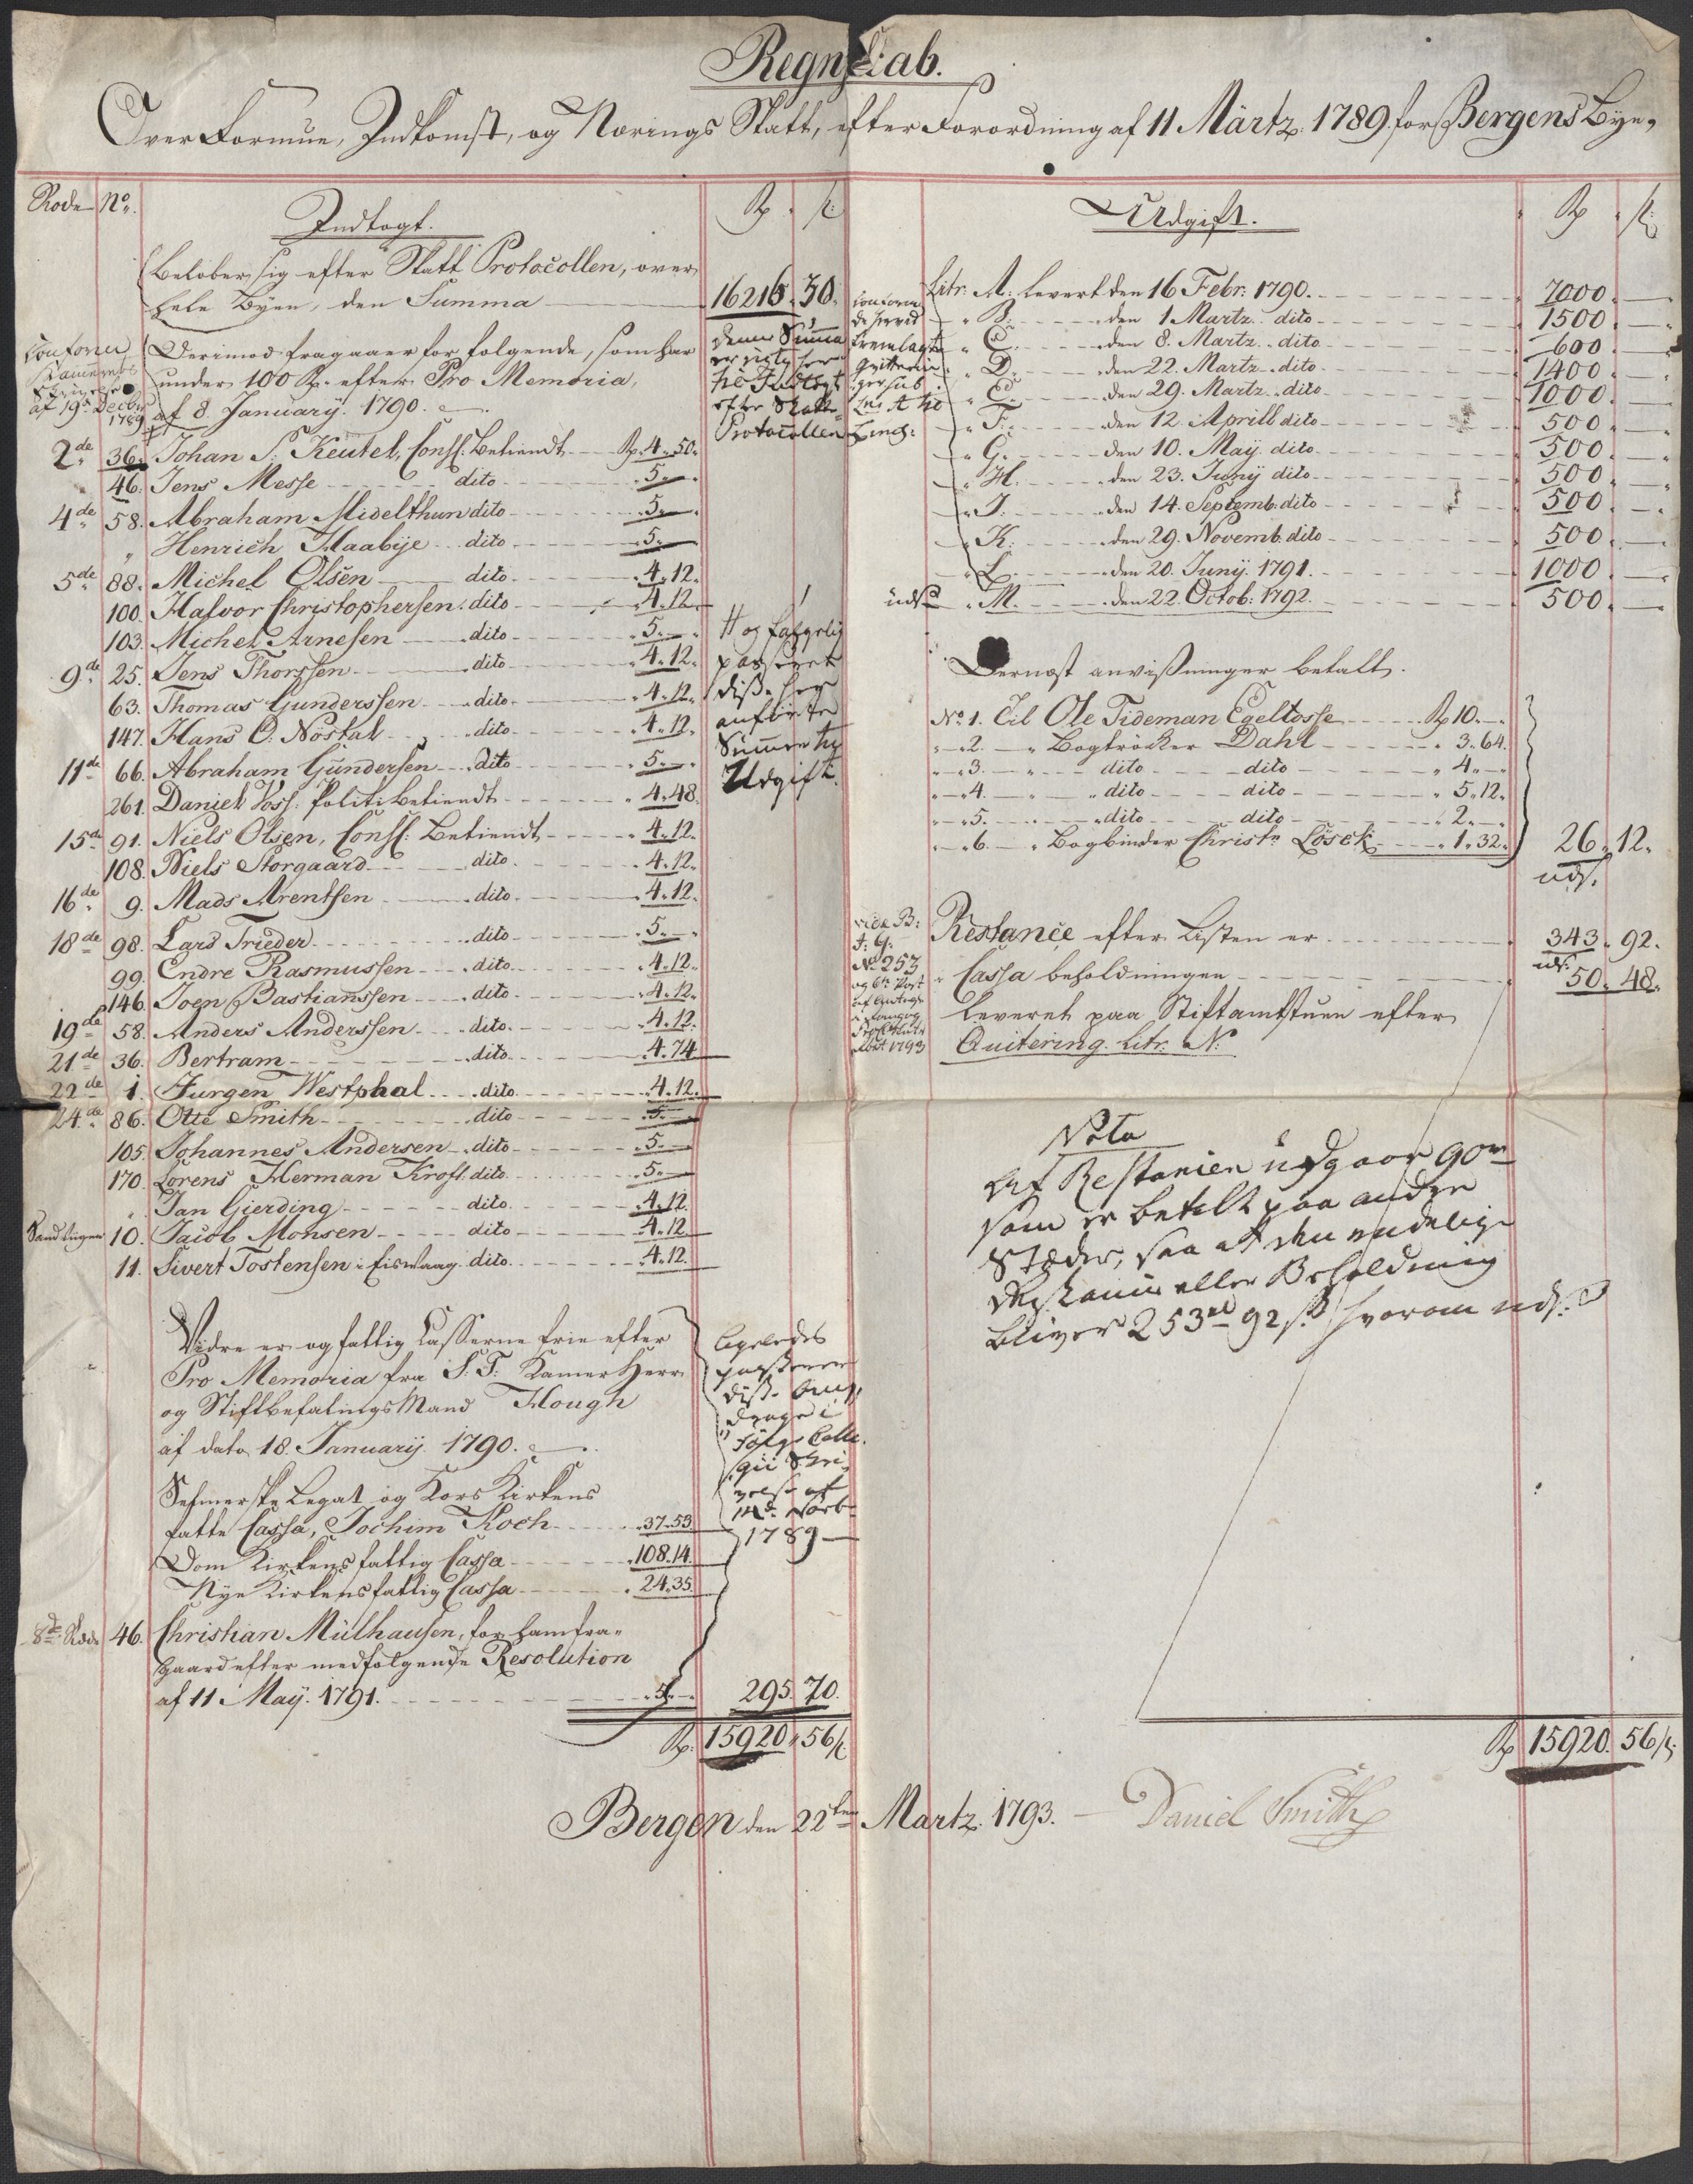 Regnskab.
Over Formue, Indkomst, og Nærings Skatt, efter Forordning af 11 Märtz 1789. for Bergens Bye,
Rode No. Indtægt. Rd s:
Beløber sig efter Skatt Protocollen, over
hele Byen, den Summa 16216. 30.
Derimod fragaaer for følgende, som har
under 100 Rd. efter Pro Memoria,
af 8 January. 1790.
Conform
Kammerets
Skrivelse
af 19de Decbr
1789
denne Summa
er rigtig her
til Indtægt
efter Skatte
Protocollen
2de 36. Johan S: Keutel, Conss: Betiendt Rd. 4. 50.
46. Jens Messe dito 5.—
4de 58. Abraham Midelthun dito 5.—
" Henrich Haabye dito 5.—
5de 88. Michel Olsen dito 4. 12.
100. Halvor Christophersen. dito 4. 12.
103. Michel Arnesen dito 5.—
9de 25. Jens Thorssen dito 4. 12.
63. Thomas Gunderssen dito 4. 12.
147. Hans O: Nøstal dito 4. 12.
11de 66. Abraham Gundersen dito 5.—
261. Daniel Voss: Politi betiendt 4. 48.
15de 91. Niels Olsen, Conss: Betiendt 4. 12.
108. Niels Storgaard dito 4. 12.
16de 9. Mads Arentsen dito 4. 12.
18de 98. Lars Trieder dito 5.—
99. Endre Rasmussen dito 4. 12.
146. Joen Bastianssen dito 4. 12.
19de 58. Anders Anderssen dito 4. 12.
21de 36. Bertram dito 4. 74
22de 1. Jurgen Westphal dito 4. 12.
24de 86. Otte Smith dito 5.—
105. Johannes Andersen dito 5.—
170. Lorens Herman Kroft. dito 5.—
" Jan Gierding dito 4. 12.
Sandvigen 10. Jacob Monsen dito 4. 12
11. Sivert Tostensen i Eiswaag. dito 4. 12.
og følgelig
passeret
disse her
anførte
Summer til
Udgift.
Vidre er og fattig Casserne frie efter
Pro Memoria fra S: T: Kamer Herr
og Stiftbefalings Mand Hough
af dato 18. January. 1790.
Sefmerske Legat og Kors Kirkens
fatte Cassa, Jochim Koch 37. 53.
Dom Kirkens fattig Cassa 108. 14.
Nye Kirkens fattig Cassa 24. 35.
ligeledes
passerer
disse
i
Følge Colle-
gii Skri-
velse af
1789
8de Rode 46. Christian Mülhausen, for ham fra-
gaard efter medfølgende Resolution
af 11 May. 1791. 5.— 295. 70.
Rd. 15920. 56 s
Udgift. Rd s:
Litr: A: Levert den 16 Febr: 1790. 7000.—
" B: den 1 Martz. dito 1500.—
" C. den 8. Martz. dito 600.—
" D. den 22. Martz. dito 1400.—
" E. den 29. Martz. dito 1000.—
" F. den 12. Aprill dito 500.—
" G. den 10. May. dito 500.—
" H. den 23. Juny dito 500.—
" I. den 14. Septemb. dito 500.—
" K. den 29. Novemb. dito 500.—
" L. den 20. Juny. 1791. 1000.—
" M. den 22. Octob: 1792. 500.—
Conform
de herved
fremlagte
Qvitterin
ger sub
Lit A til
Dernæst anvissninger betalt.
No. 1. Til Ole Tideman Egeltosse Rd 10.—
2. " Bogtrøcker Dahl 3. 64.
3. " dito dito 4.—
4. " dito dito 5. 12.
5. " dito dito 2.—
6. " Bogbinder Christn Løsek 1. 32. 26. 12.
Restance efter Listen er 343. 92.
Cassa beholdningen 50. 48.
Leveret paa Stiftamtstuen efter
Quitering. Litr. N:
vide B:
No 253
og 6te Post
1793
Nota
Af Restancen udgaar 90
som er betalt paa andre
Stæder, saa at den endelige
Restance eller Beholdning
bliver 253rd 92 s. hvorom
Rd 15920. 56 s.
Bergen den 22ten Martz. 1793.
Daniel Smith